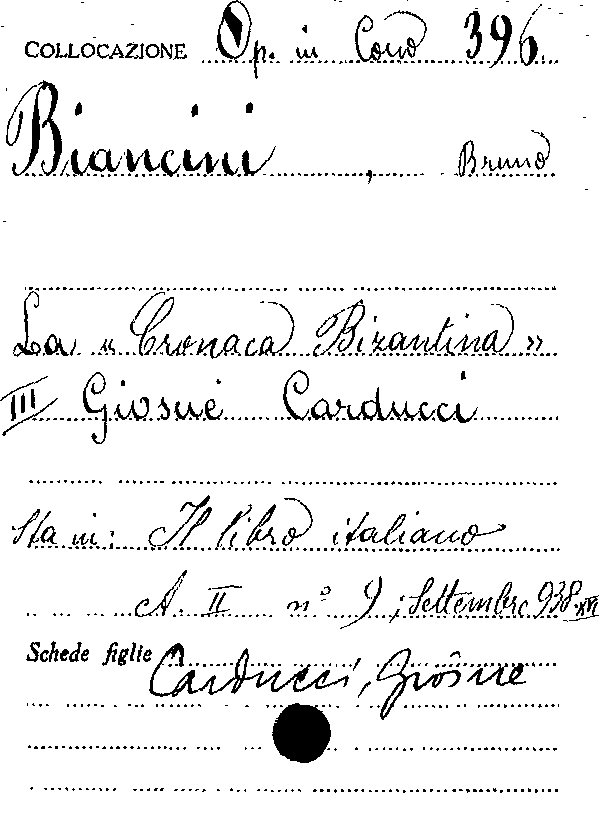 COLLOCAZIONE Op. in Cons 396.
Biancini, Bruno
La « Cronaca Bizantina »
III Giosuè Carducci
Sta in: Il libro italiano
A. II n° 9; Settembre 938-XVI
Schede figlie Carducci, Giosue